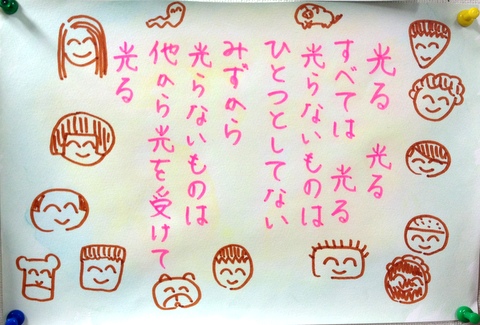 光る　光る
すべては　光る
光らないものは
ひとつとしてない
みずから
光らないものは
他から光を受けて
光る